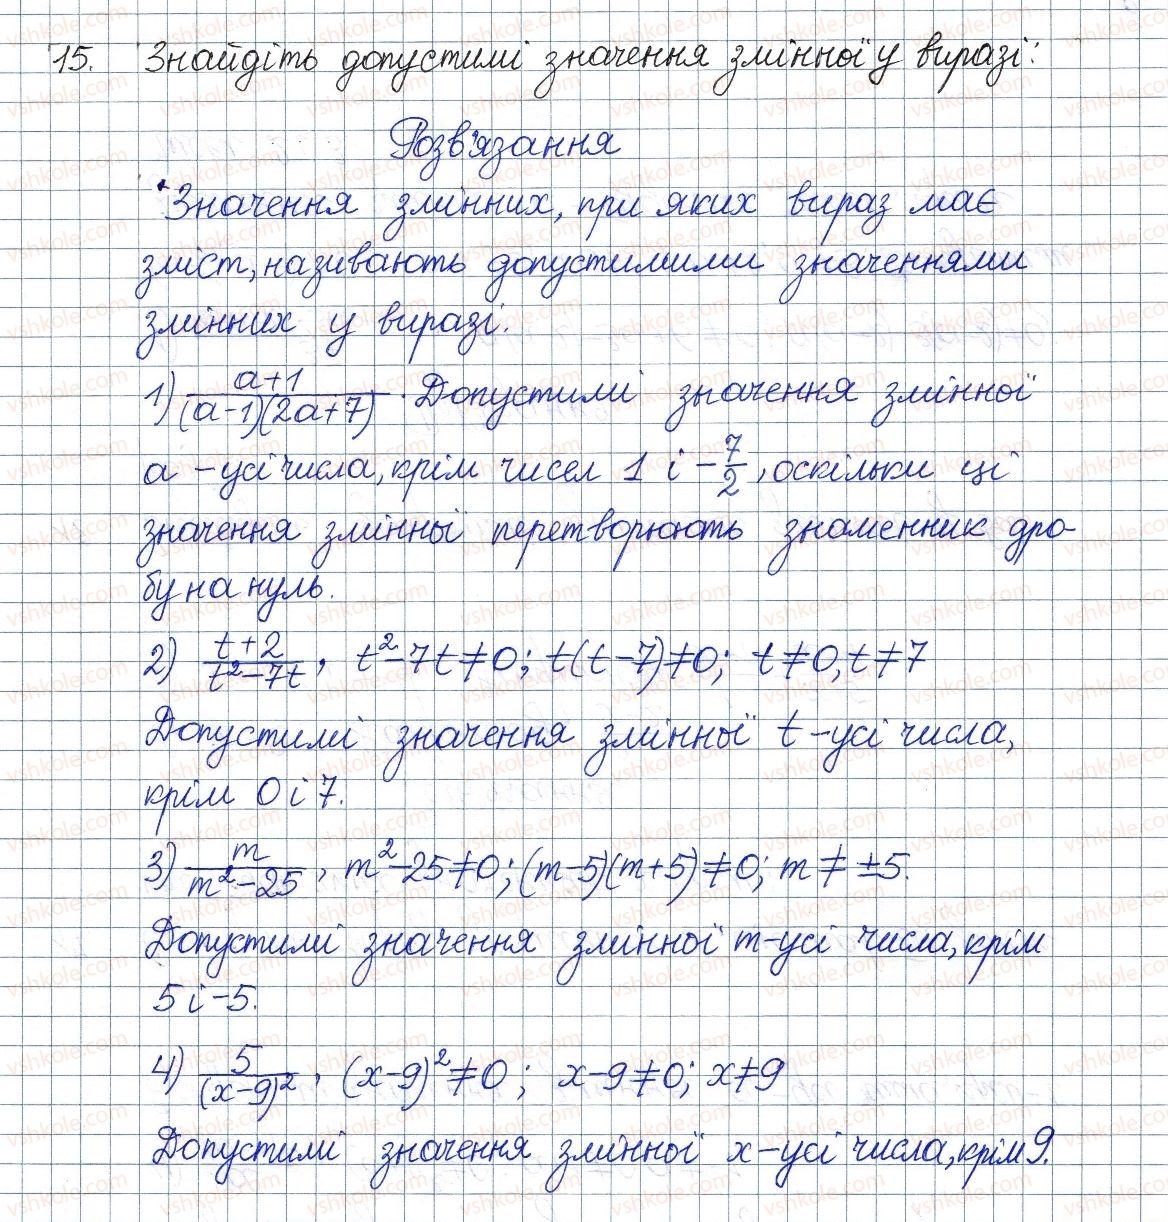 15. Знайдіть допустимі значення змінної у виразі:
Розв'язання
Значення змінних, при яких вираз має
зміст, називають допустимими значеннями
змінних у виразі.
1) (a+1)/((a-1)(2a+7)). Допустимі значення змінної
a – усі числа, крім чисел 1 і -7/2, оскільки ці
значення змінної перетворюють знаменник дро-
бу на нуль.
2) (t+2)/(t²-7t), t²-7t≠0; t(t-7)≠0; t≠0, t≠7
Допустимі значення змінної t – усі числа,
крім 0 і 7.
3) m/(m²-25), m²-25≠0; (m-5)(m+5)≠0; m≠±5.
Допустимі значення змінної m – усі числа, крім
5 і -5.
4) 5/(x-9)², (x-9)²≠0; x-9≠0; x≠9
Допустимі значення змінної x – усі числа, крім 9.
vshkole.com